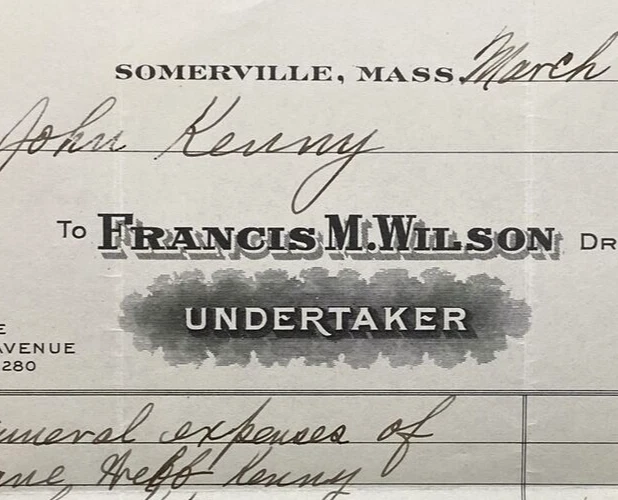 SOMERVILLE, MASS. March
John Kenny
To FRANCIS M. WILSON DR
UNDERTAKER
E
AVENUE
280
uneral expenses of
ane Kenny